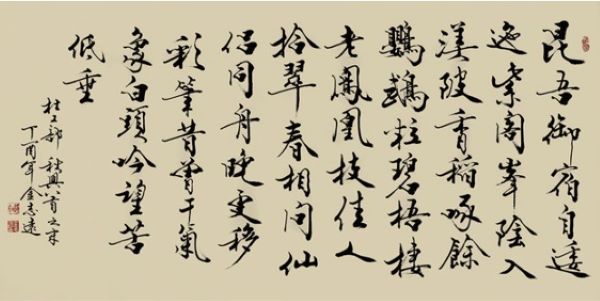 昆吾御宿自逶
迤紫閣峯陰入
渼陂香稻啄餘
鸚鵡粒碧梧棲
老鳳凰枝佳人
拾翠春相问仙
侣同舟晚更移
彩筆昔曾干氣
象白頭吟望苦
低垂
杜工部秋興八首之末
丁酉年金志遠